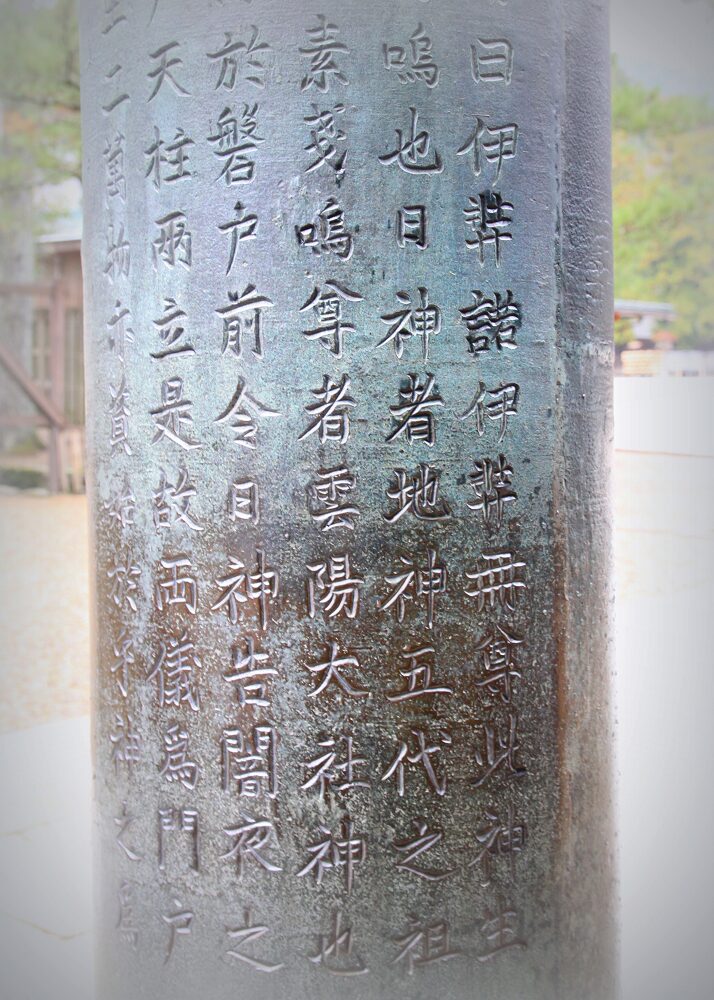 曰伊弉諾伊弉冊尊此神生
嗚也日神者地神五代之祖
素戔嗚尊者雲陽大社神也
於磐戸前令日神告闇夜之
天柱両立是故両儀爲門戸
二萬物亦資始於神之爲